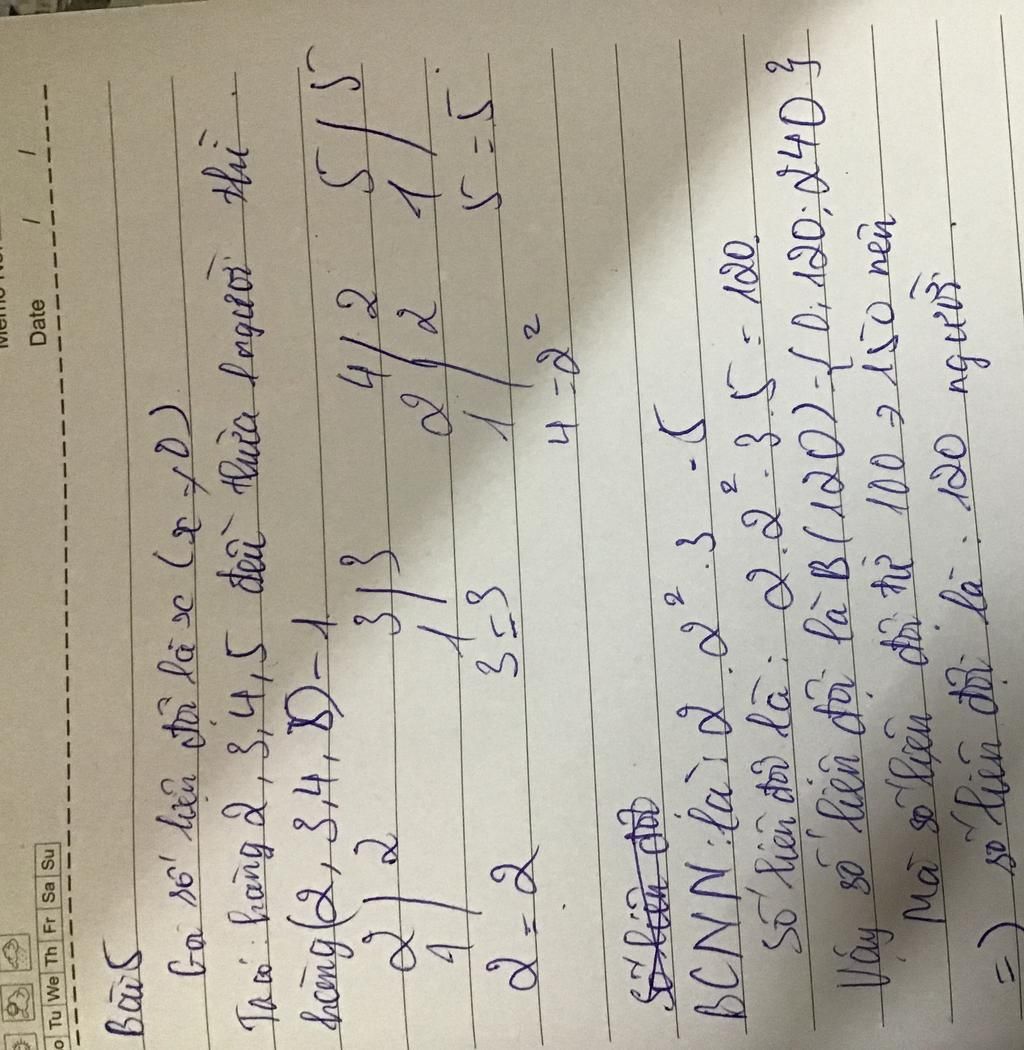 Memo No.
Date / /
o Tu We Th Fr Sa Su
Bài 5
Gọi số liên đội là x (x > 0)
Ta có: hàng 2, 3, 4, 5 đều thừa 1 người thì
hàng (2, 3, 4, 5) - 1
2 / 2 3 / 3 4 / 2 5 / 5
1 1 2 / 2 1
1
2 = 2 3 = 3 4 = 2² 5 = 5
BCNN là: 2 . 2² . 3 . 5
Số liên đội là: 2 . 2² . 3 . 5 = 120
Vậy số liên đội là B (120) = { 0; 120; 240 }
Mà số liên đội từ 100 → 150 nên
=) số liên đội là : 120 người.